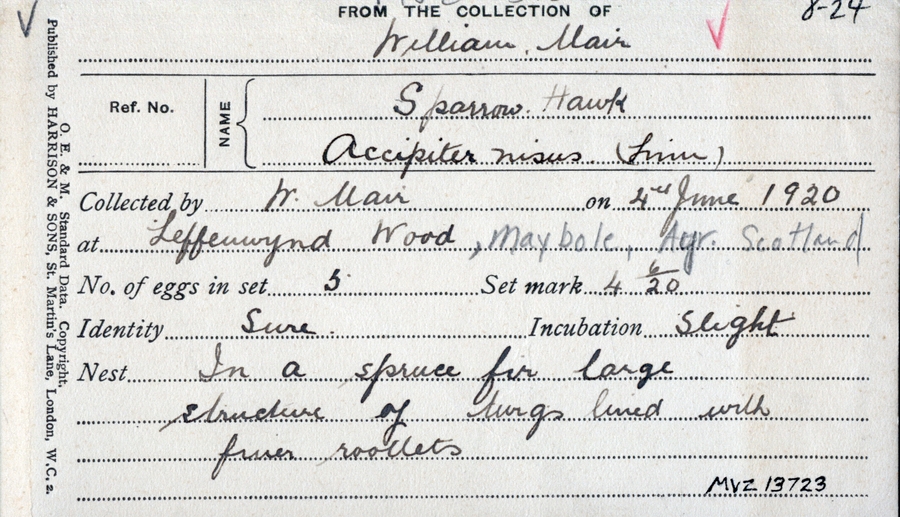 FROM THE COLLECTION OF
8-24
William Mair
Ref. No.
NAME
Sparrow Hawk
Accipiter nisus (Linn)
Collected by W. Mair on 4th June 1920
at Leffenwynd Wood, Maybole, Ayr. Scotland
No. of eggs in set 5 Set mark 4 6/20
Identity Sure. Incubation Slight
Nest In a spruce fir large
structure of twigs lined with
finer rootlets
MVZ 13723
O. E. & M. Standard Data. Copyright,
Published by HARRISON & SONS, St. Martin's Lane, London, W.C. 2.